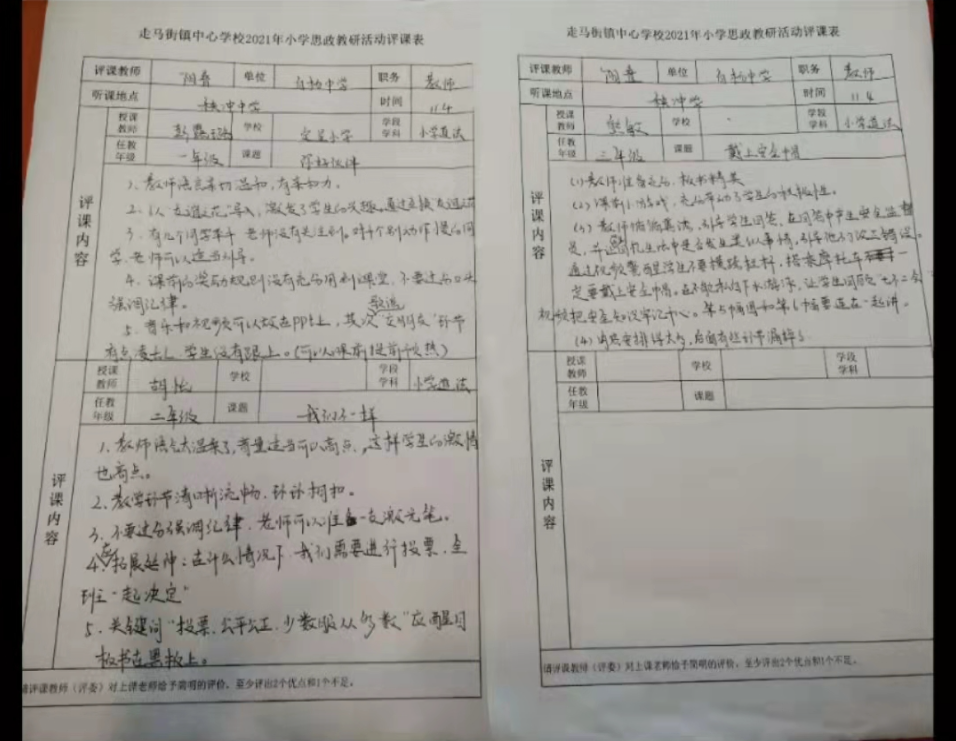 走马街镇中心学校2021年小学思政教研活动评课表
评课教师 单位 中学 职务 教师
听课地点 中学 时间 11.4
授课教师 学校 小学 学段学科 小学道法
任教年级 一年级 课题 伙伴
评课内容
1、教师语言亲切温和,有亲和力。
2、以"友谊之花"导入,激发了学生的兴趣。通过
3、有几个同学举手 老师没有关注到。对个别动作慢的同
学,老师可以适当引导。
4、课前的奖励规则没有充分用到课堂,不要过与口头
强调纪律。
5、音乐和视频可以放在PPT上,其次"交朋友"环节
有点 学生没有跟上。(可以课前提前预热)
授课教师 胡 学校 学段学科 小学道法
任教年级 二年级 课题 我们不一样
评课内容
1、教师语气太温柔了,音量适当可以高点,这样学生的激情
也高点。
2、教学环节清晰流畅,环环相扣。
3、不要过与强调纪律,老师可以准备一支激光笔。
4、拓展延伸:在什么情况下,我们需要进行投票,全
班"一起决定"
5、关键词"投票、公平公正、少数服从多数"应醒目
板书在黑板上。
请评课教师(评委)对上课老师给予简明的评价,至少评出2个优点和1个不足。
走马街镇中心学校2021年小学思政教研活动评课表
评课教师 单位 中学 职务 教师
听课地点 中学 时间 11.4
授课教师 敏 学校 学段学科 小学道法
任教年级 三年级 课题 戴上安全帽
评课内容
(1)教师准备充分,板书精美
(2)课前小游戏,充分带动了学生的积极性。
(3)教师 引导学生回答,在回答中产生安全意
识,并 生活中是否发生类似事情,引导他不
通过视频警醒学生不要模仿 ,搭乘摩托车
定要戴上安全帽。 私自下水游泳,让学生
把安全知识牢记心中。第5幅图和第6幅图要连在一起讲。
(4) 安排得太多,后面有些环节漏掉了
授课教师 学校 学段学科
任教年级 课题
评课内容
请评课教师(评委)对上课老师给予简明的评价,至少评出2个优点和1个不足。